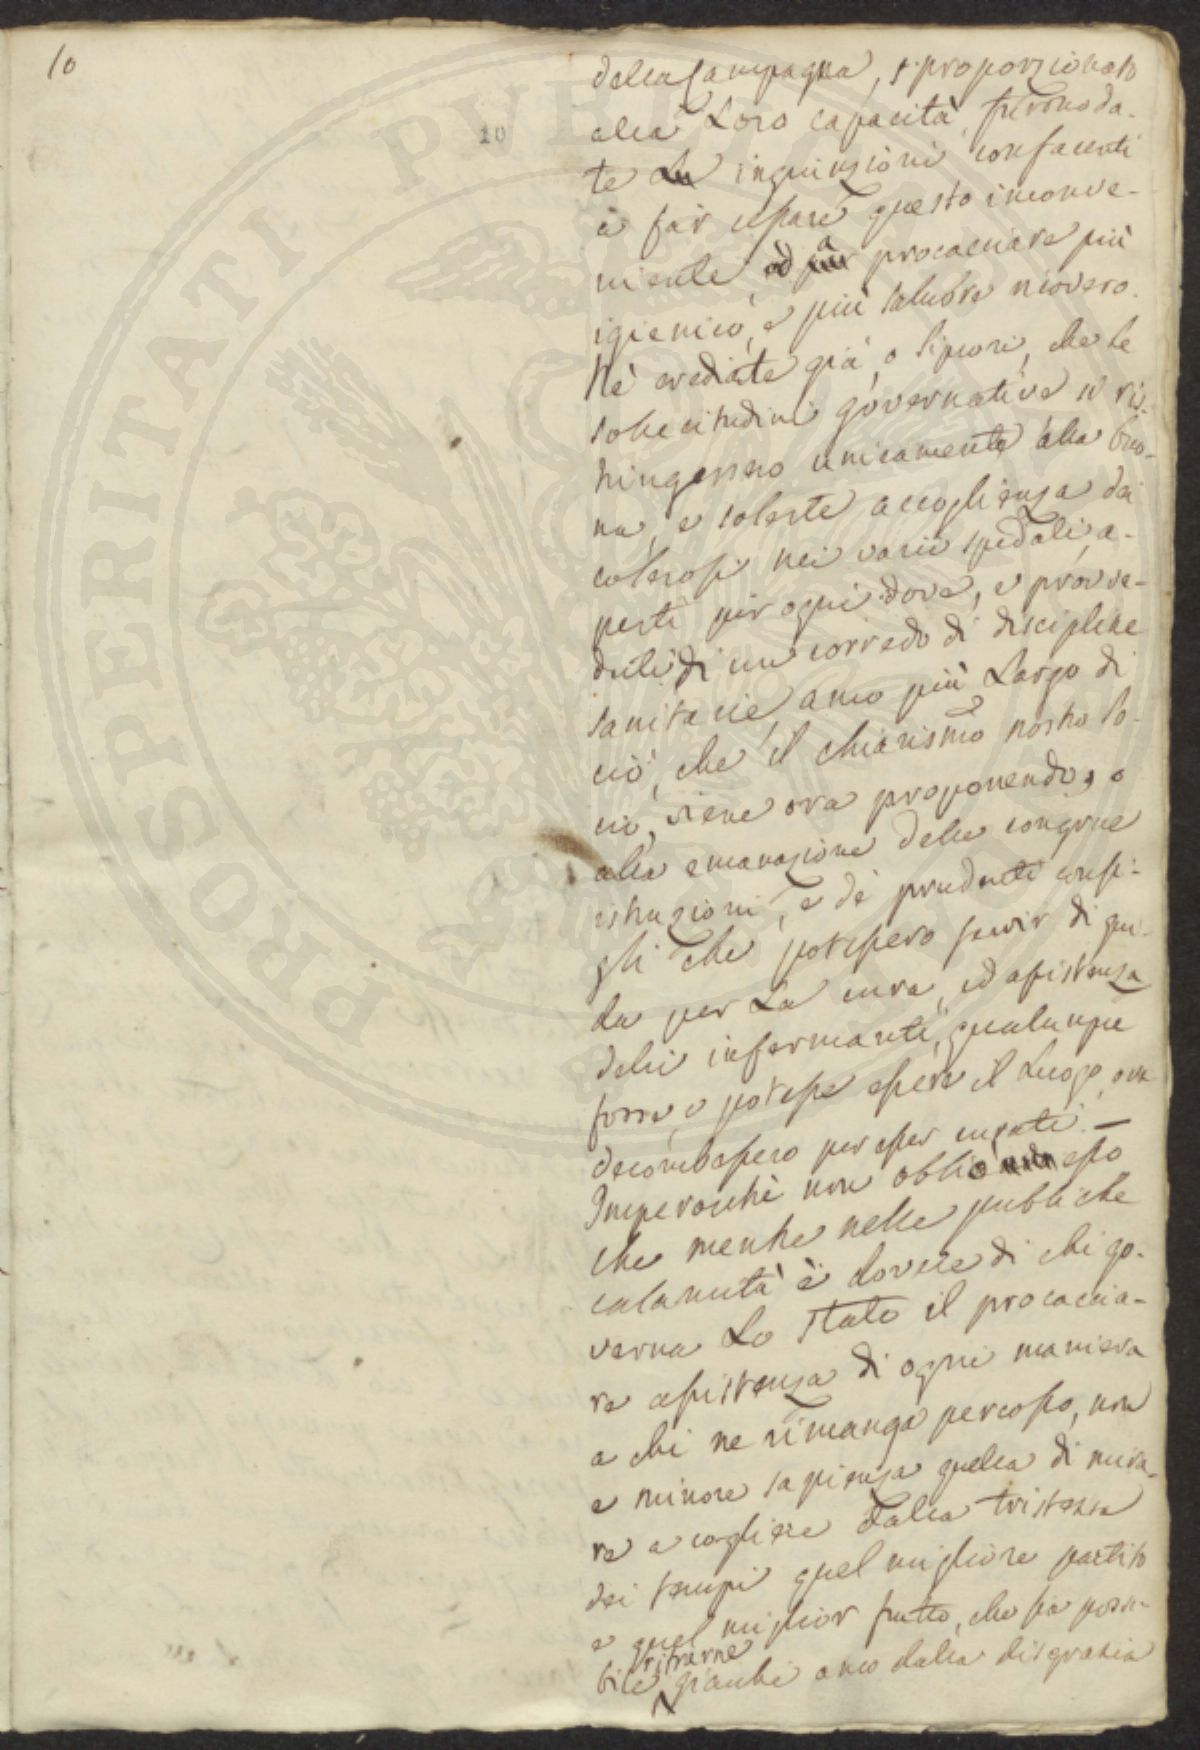 10
10
della Campagna, sproporzionato
alla Loro capacità, furono da-
te ingiunzioni confacenti
a far cessare questo inconve-
niente, ed a procacciare più
igienico, e più salubre ricovero.
Nè crediate già, o Signori, che le
sollecitudini governative si ris-
tringessero unicamente alla buo-
na, e solerte accoglienza dei
colerosi nei varii spedali a-
perti per ogni dove, e provve-
duti di un corredo di discipline
sanitarie, anco più Largo di
ciò, che il chiarismo nostro So-
cio, viene ora proponendo, o
alla emanazione delle congrue
istruzioni, e de' prudenti consi-
gli che potessero servir di gui-
da per La cura, ed assistenza
delli infermanti, qualunque
fosse, o potesse essere il Luogo, ove
decombessero per esser curati. —
Imperocchè non obbliò esso
che mentre nelle pubbliche
calamità è dovere di chi go-
verna Lo Stato il procaccia-
re assistenza di ogni maniera
a chi ne rimanga percosso, non
è minore sapienza quella di mira-
re a cogliere dalla tristezza
dei tempi quel migliore partito
e quel miglior frutto, che sia possi-
bile ritrarne gianchè anco dalla disgrazia
PROSPERITATI PVBLICAE